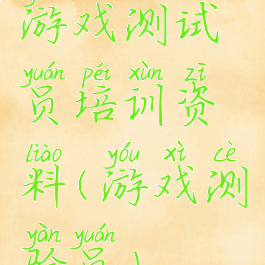 游戏测试
yuán péi xùn zī
员培训资
liào yóu xì cè
料(游戏测
yàn yuán
验员)